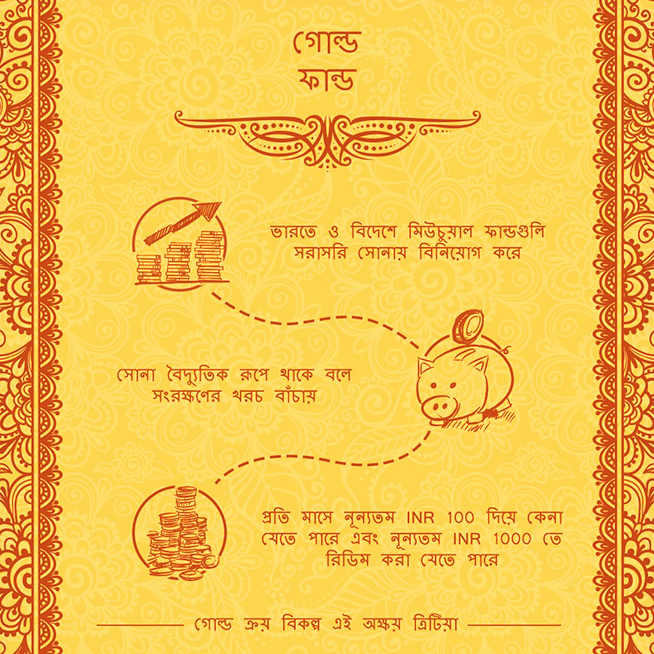 গোল্ড
ফান্ড
ভারতে ও বিদেশে মিউচুয়াল ফান্ডগুলি
সরাসরি সোনায় বিনিয়োগ করে
সোনা বৈদ্যুতিক রূপে থাকে বলে
সংরক্ষণের খরচ বাঁচায়
প্রতি মাসে নূন্যতম INR 100 দিয়ে কেনা
যেতে পারে এবং নূন্যতম INR 1000 তে
রিডিম করা যেতে পারে
গোল্ড ক্রয় বিকল্প এই অক্ষয় ত্রিটিয়া